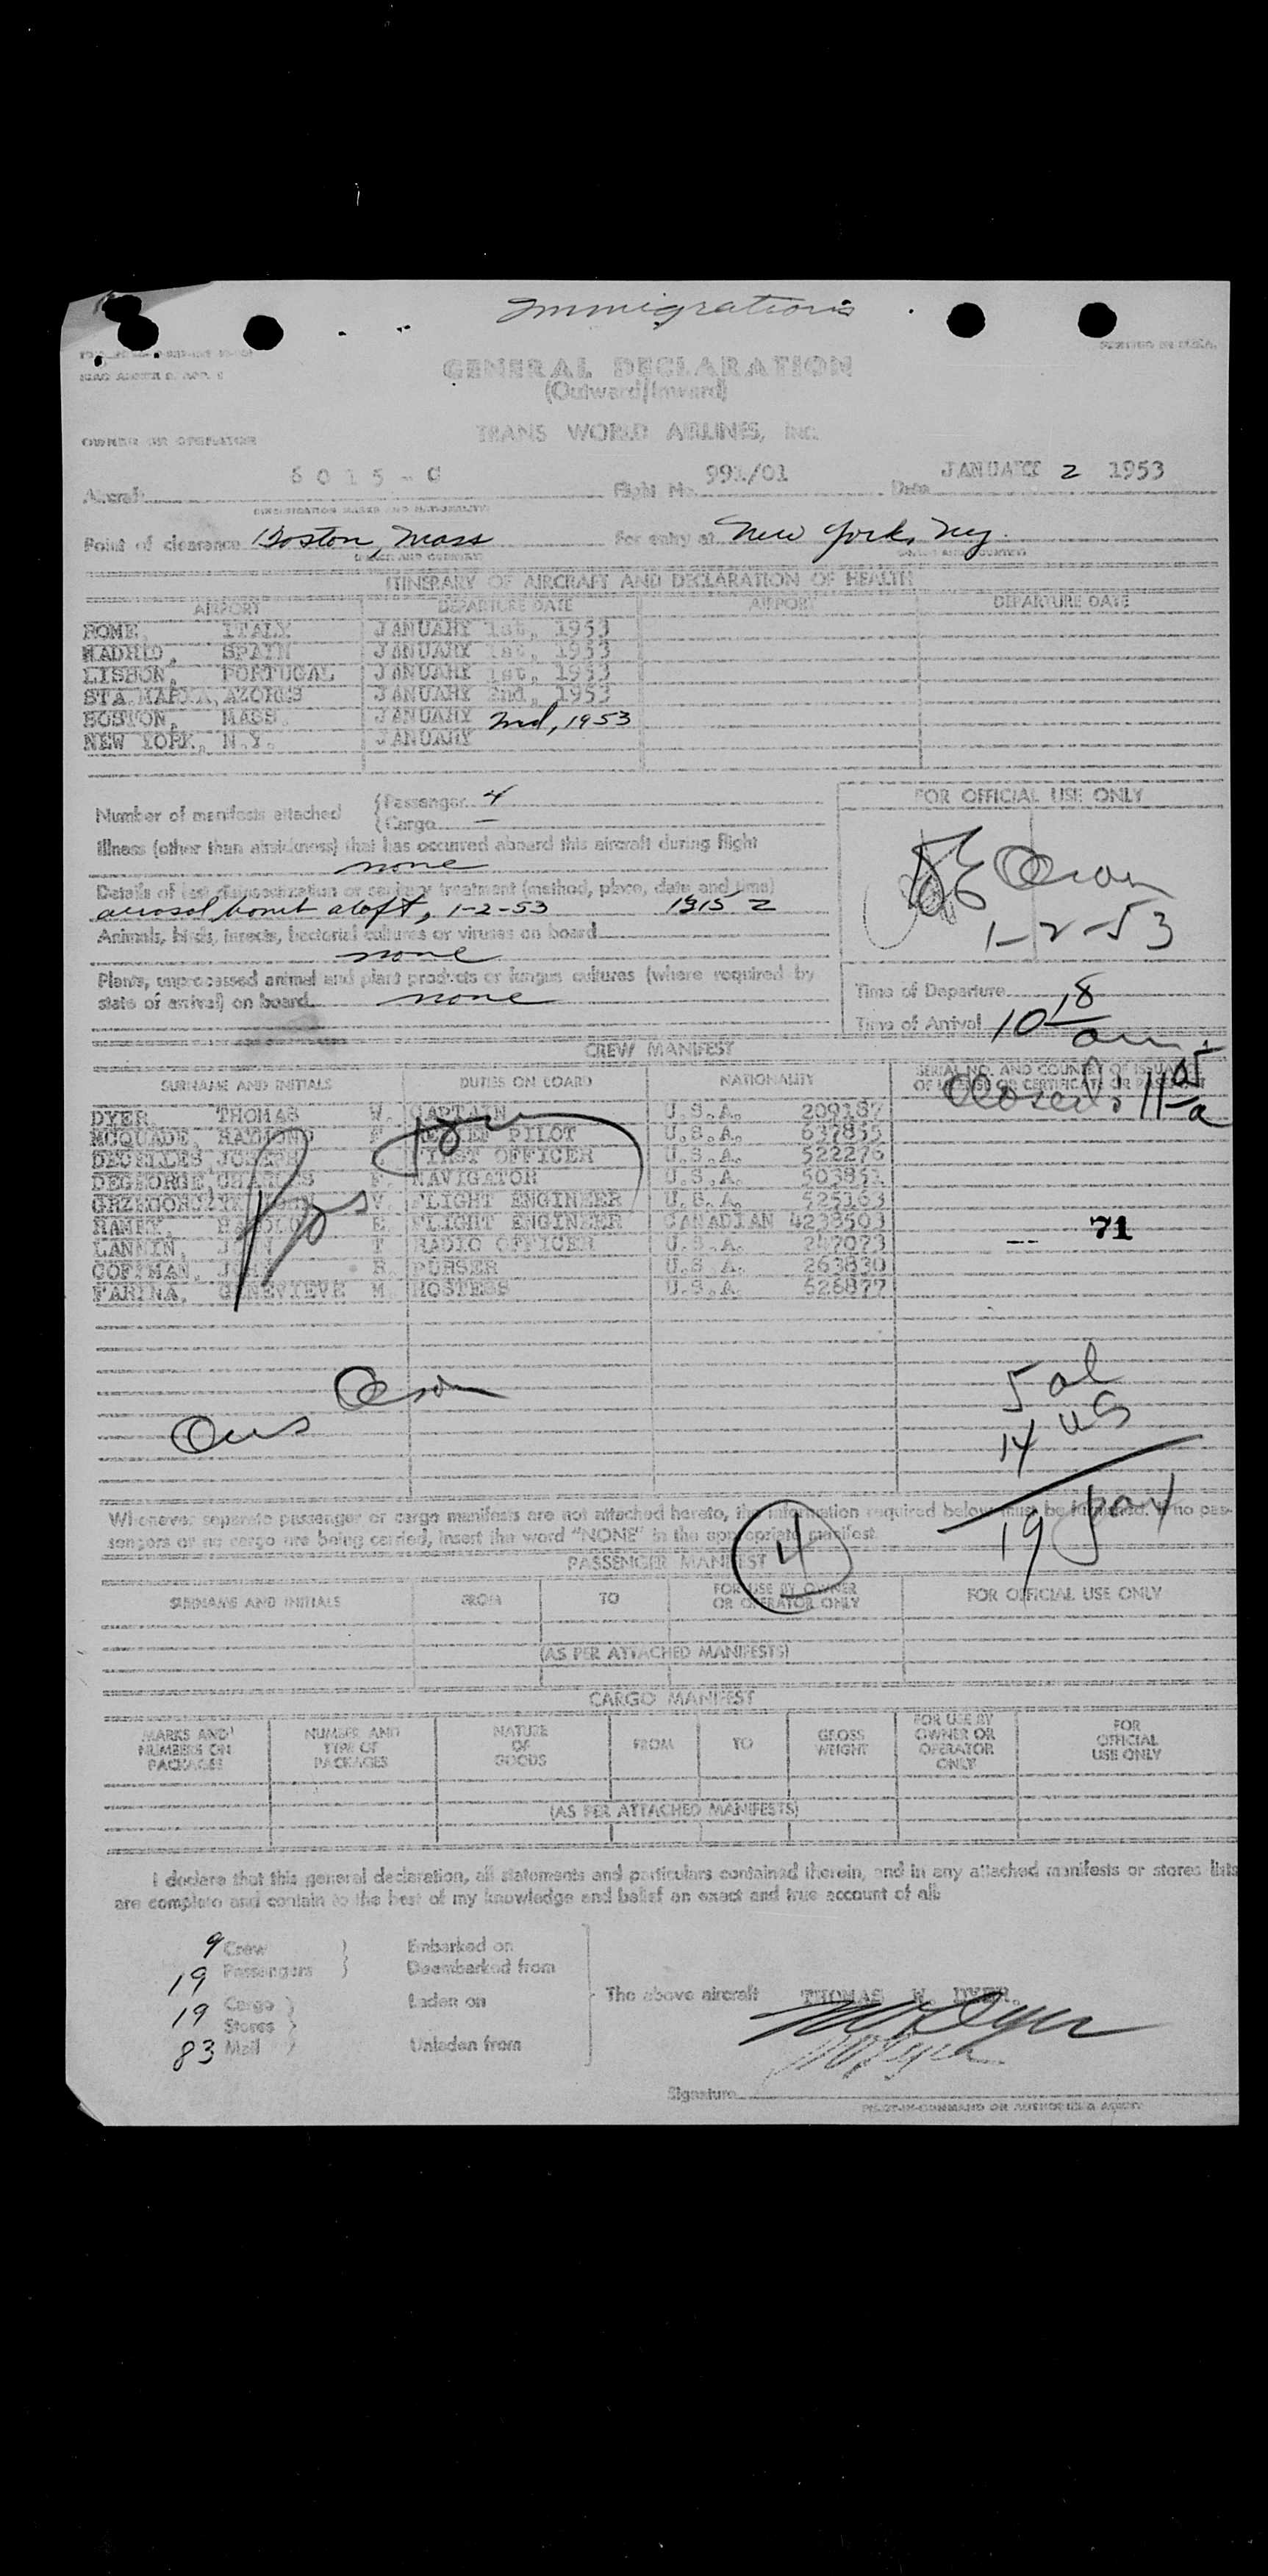 Immigrations
PRINTED IN U.S.A.
GENERAL DECLARATION
(Outward/Inward)
OWNER OR OPERATOR TRANS WORLD AIRLINES, INC.
Aircraft 6015-C Flight No. 991/01 Date JANUARY 2 1953
Point of clearance Boston, Mass For entry at New York, Ny.
ITINERARY OF AIRCRAFT AND DECLARATION OF HEALTH
AIRPORT DEPARTURE DATE AIRPORT DEPARTURE DATE
ROME, ITALY JANUARY 1st, 1953
MADRID, SPAIN JANUARY 1st, 1953
LISBON, PORTUGAL JANUARY 1st, 1953
STA.MARIA, AZORES JANUARY 2nd, 1953
BOSTON, MASS. JANUARY 2nd, 1953
NEW YORK, N.Y. JANUARY
Number of manifests attached { Passenger 4
{ Cargo —
FOR OFFICIAL USE ONLY
Illness (other than airsickness) that has occurred aboard this aircraft during flight
none
Details of last disinsectization or sanitary treatment (method, place, date and time)
aerosol bomb aloft, 1-2-53 1915 Z
1-2-53
Animals, birds, insects, bacterial cultures or viruses on board
none
Plants, unprocessed animal and plant products or fungus cultures (where required by
state of arrival) on board none
Time of Departure
Time of Arrival 10 18 am
CREW MANIFEST
SURNAME AND INITIALS DUTIES ON BOARD NATIONALITY SERIAL NO. AND COUNTRY OF ISSUANCE
OF LICENSE OR CERTIFICATE OR PASSPORT
Closed 11 05 a
DYER, THOMAS W. CAPTAIN U.S.A. 209187
MCQUADE, RAYMOND F. RELIEF PILOT U.S.A. 637855
JOSEPH FIRST OFFICER U.S.A. 522276
DEGEORGE, CHARLES F. NAVIGATOR U.S.A. 503851
V. FLIGHT ENGINEER U.S.A. 525163
HAROLD E. FLIGHT ENGINEER CANADIAN 4233503
LANNIN, JOHN T RADIO OFFICER U.S.A. 247073
COFFMAN, JOHN R. PURSER U.S.A. 263830
FARINA, GENEVIEVE M. HOSTESS U.S.A. 526877
71
5 al
14 US
19 pax
4
Whenever separate passenger or cargo manifests are not attached hereto, the information required below must be furnished. If no pas-
sengers or no cargo are being carried, insert the word "NONE" in the appropriate manifest.
PASSENGER MANIFEST
SURNAME AND INITIALS FROM TO FOR USE BY OWNER
OR OPERATOR ONLY FOR OFFICIAL USE ONLY
(AS PER ATTACHED MANIFESTS)
CARGO MANIFEST
MARKS AND
NUMBERS ON
PACKAGES NUMBER AND
TYPE OF
PACKAGES NATURE
OF
GOODS FROM TO GROSS
WEIGHT FOR USE BY
OWNER OR
OPERATOR
ONLY FOR
OFFICIAL
USE ONLY
(AS PER ATTACHED MANIFESTS)
I declare that this general declaration, all statements and particulars contained therein, and in any attached manifests or stores lists
are complete and contain to the best of my knowledge and belief an exact and true account of all:
9 Crew Embarked on
19 Passengers Disembarked from
19 Cargo Laden on The above aircraft THOMAS W. DYER,
Stores
83 Mail Unladen from
Signature
PILOT-IN-COMMAND OR AUTHORIZED AGENT